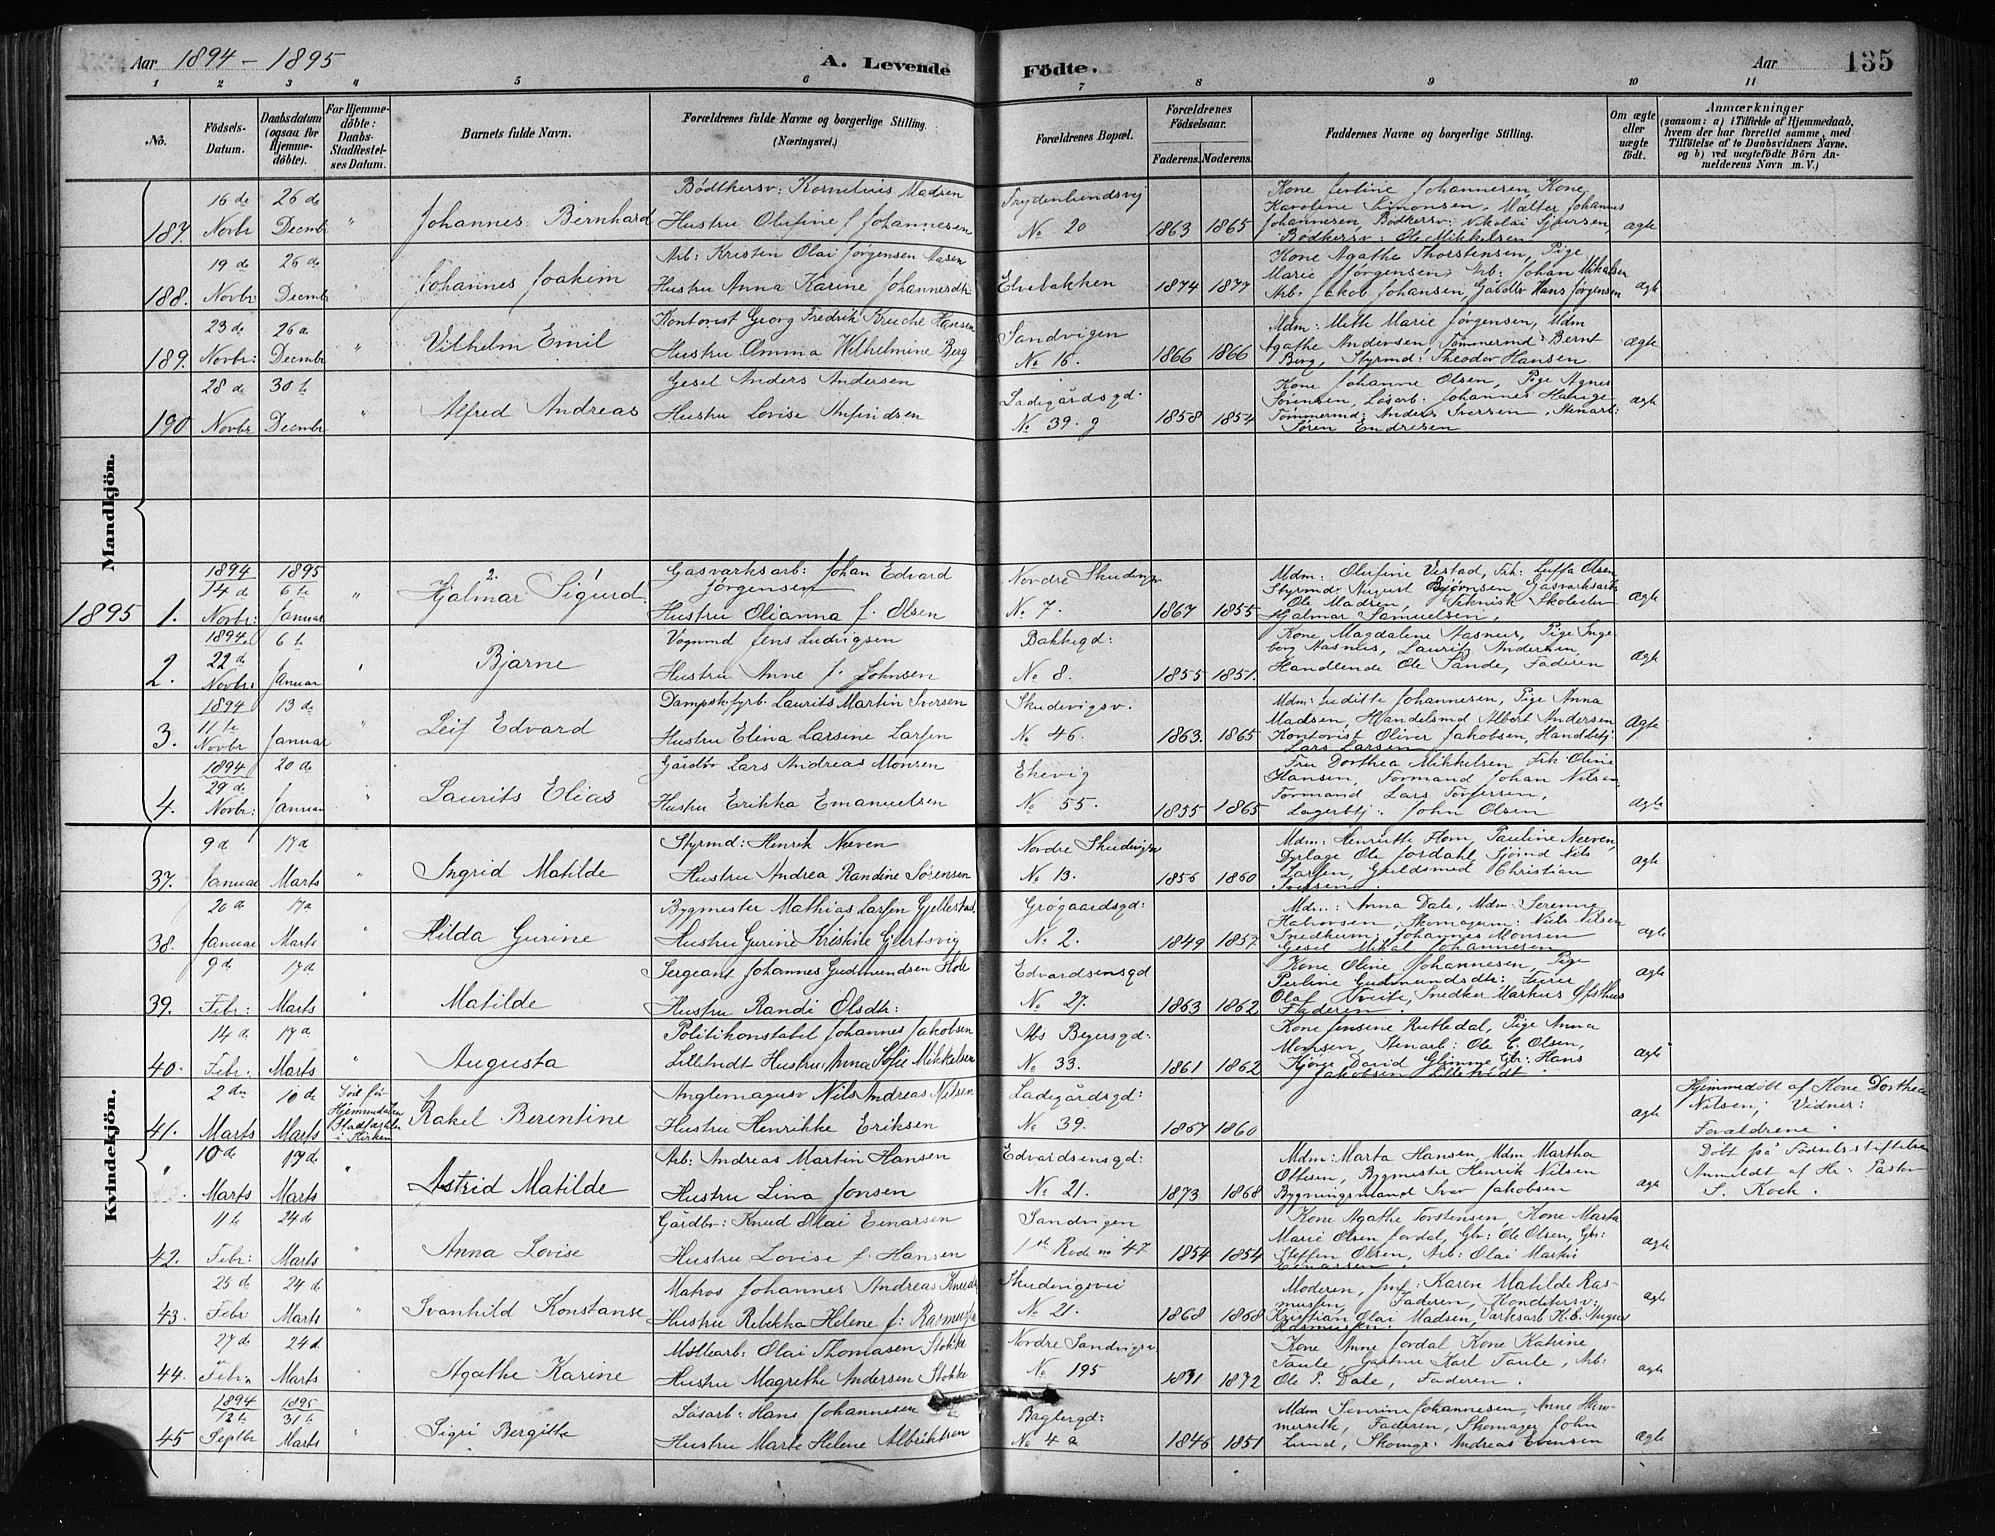 Aar 1894 - 1895
A. Levende Födte.
Aar
135
1 2 3 4 5 6 7 8 9 10 11
No.
Födsels-Datum.
Daabsdatum (ogsaa for Hjemme-döbte).
For Hjemme-döbte: Daabs-Stadfæstel-ses Datum.
Barnets fulde Navn.
Forældrenes fulde Navne og borgerlige Stilling.
(Næringsvei.)
Forældrenes Bopæl.
Forældrenes Födselsaar.
Faderens. Moderens.
Faddernes Navne og borgerlige Stilling.
Om ægte eller uægte födt.
Anmærkninger
(saasom: a) i Tilfælde af Hjemmedaab,
hvem der har forrettet samme, med
Tilföielse af to Daabsvidners Navne.
og b) ved uægtefödte Börn An-
melderens Navn m. V.)
Mandkjön.
187. 16 de Novbr 26 de Decmbr " Johannes Bernhard
Bödkersv: Kornelius Madsen
Hustru Olufine f Johannesen
Frydenlundsvj
No 20
1863 1865
Kone Karoline Simonsen, Mælter Johannes
Johannesen, Bödkersv: Nikolai Sjversen,
Bödkersv: Ole Mikkelsen
ægte
188. 19 de Novbr 26 de Decmbr " Johannes Joakim
Arb: Kristen Olai Jørgensen Aasen
Hustru Anna Karine Johannesdtr
Elvebakken
1874 1877
Kone Agathe Thorstensen, Pige
Marie Jørgensen, Arb: Johan Mikalsen
Arb: Jakob Johansen, Gårdbr Hans Jørgensen
ægte
189. 23 de Novbr: 26 d Decmbr " Vilhelm Emil
Kontorist Georg Fredrik Hansen
Hustru Amma Wilhelmine Berg
Sandvigen
No 15.
1866 1866
Mdm: Mette Marie Jørgensen, Mdm
Agathe Andersen, Tömmermd: Bernt
Berg, Styrmd: Theodor Hansen
ægte
190 28 de Novbr 30 te Decmbr " Alfred Andreas
Gesel Anders Andersen
Hustru Lovise Anfindsen
Ladegårdsgd.
No 39. g
1858 1854
Kone Johanne Olsen, Pige Agnes
Sörensen, Lösarb: Johannes Hauge
Tömmermd: Anders Iversen, Stenarb:
Sören Endresen
ægte
1895 1. 1894 14 de Novbr: 1895 6 te Januar " Hjalmar Sigurd
Gasværksarb: Johan Edvard
Jörgensen
Hustru Olianna f. Olsen
Nordre Skudevigsv
No 7.
1867 1855
Mdm: Olufine Vestad, Frk: Luffa Olsen
Styrmd: August Bjørnsen, Gasværksarb
Ole Madsen, Teknisk Skoleelev
Hjalmar Samuelsen,
ægte
2. 1894 22 de Novbr: 6 te Januar " Bjarne
Vognmd Jens Ludvigsen
Hustru Anne f. Johnsen
Bakkegd:
No 8.
1855 1851.
Kone Magdalene Aasnes, Pige Inge-
borg Aasnes, Laurits Andersen,
Handlende Ole Sande, Faderen
ægte
3. 1894 11 te Novbr 13 de Januar " Leif Edvard
Dampsk.fyrb. Laurits Martin Iversen
Hustru Elina Larsine Larsen
Skudevigsv.
No 46.
1863. 1865
Mdm: Juditte Johannesen, Pige Anna
Madsen, Handelsmd Albert Andersen
Kontorist Oliver Jakobsen, Handelsbtj.
Lars Larsen
Ægte
4. 1894 29 de Novbr: 20 de Januar " Laurits Elias
Gårdbr Lars Andreas Monsen
Hustru Erikka Emanuelsen
Ekevig
No 55.
1855 1865
Fru Dorthea Mikkelsen, Frk Oline
Hansen, Formand Johan Nilsen
Formand Lars Torfersen,
Lagerbtj. John Olsen
ægte
Kvindekjön.
37. 9 d Januar 17 d Marts " Ingrid Matilde
Styrmd: Henrik Neeven
Hustru Andrea Randine Sörensen
Nordre Skudevigsv
No 13.
1856 1860
Mdm: Henriette Horn, Pauline Neeven,
Dyrlæge Ole Jordahl, Sjöind Nils
Larsen, Guldsmed Christian
Iversen.
ægte
38. 20 d Januar 17 d Marts " Hilda Gurine
Bygmester Mathias Larsen Gjellestad
Hustru Gurine Kristine Gjertsvig
Grögaardsgd:
No 2.
1849 1857
Mdm: Anna Dale, Mdm: Serenne
Halvorsen, Skomagerm: Niels Nilsen
Snedkerm; Johannes Monsen
Gesel Mikal Johannesen
ægte
39. 9 d Febr: 17 d Marts " Matilde
Sergeant Johannes Gudmundsen Hole
Hustru Randi Olsdtr:
Edvardsensgd
No 27.
1863 1862
Kone Oline Johannesen, Pige
Perline Gudmundsdtr: Feier
Olaf Tveite, Snedker Markus Ofsthus
Faderen.
ægte
40. 14 d Febr. 17 d Marts " Augusta
Politikonstabel Johannes Jakobsen
Lilletvedt Hustru Anna Sofie Mikkelsen
Abs Beyersgd:
No 33.
1861 1862
Kone Jensine Rutledal, Pige Anna
Monsen, Stenarb: Ole C. Olsen,
Kjöge David Glimme, Gbr: Hans
Jakobsen Lilletvedt.
ægte
41. 2 den Marts 10 de Marts Död før Hjemmedåben Stadfæstedes i Kirken Rakel Berentine
Anglemagersv Nils Andreas Nilsen
Hustru Henrikke Eriksen
Ladegårdsgd:
No 39.
1867 1860
ægte
Hjemmedöbt af Kone Dorthea
Nilsen; Vidner:
Forældrene.
" 10 d Marts 17 de Marts " Astrid Matilde
Arb: Andreas Martin Hansen
Hustru Lina Jonsen
Edvardsensgd:
No 21.
1873 1868
Mdm: Marta Hansen, Mdm Martha
Ottesen, Bygmester Henrik Nilsen
Bygningsmand Iver Jakobsen
ægte
Döbt på Födselsstiftelsen
Anmeldt af Hr: Pastor
S. Koch.
42. 11 te Febr: 24 de Marts " Anna Lovise
Gårdbr: Knud Olai Einarsen
Hustru Lovise f. Hansen
Sandvigen
1ste Rode no 47
1854 1854
Kone Agathe Torstensen, Kone Marta
Marie Olsen Jordal, Gbr: Ole Olsen, Gbr:
Steffen Olsen, Arb: Olai Martin
Einarsen.
ægte
43. 25 d Febr 24 de Marts " Svanhild Konstanse
Matros Johannes Andreas Knuds
Hustru Rebekka Helene f: Rasmussen
Skudevigsvei
No 21.
1868 1868
Moderen, Jmf: Karen Matilde Ras-
mussen, Faderen, Konditersv:
Kristian Olai Madsen, Værksarb K.b. August
Rasmussen.
ægte
44. 27 de Febr 24 d Marts " Agathe Karine
Möllearb: Olai Thomasen Stokke
Hustru Magrethe Andersen Stokke
Nordre Sandvigsv
No 195
1871 1872
Kone Anne Jordal, Kone Katrine
Taule, Gartner Karl Taule, Arb:
Ole P. Dale, Faderen.
ægte
45 1894 12 te Septbr 1895 31 te Marts " Sigri Bergitte
Lösarb: Hans Johannesen
Hustru Marte Helene Albriktsen
Baglergd:
No 4 a
1846 1851
Mdm Severine Johannesen, Anne Hem-
mersetth, Faderen, Skomager John
Lund, Skomgr: Andreas Evensen
Ægte